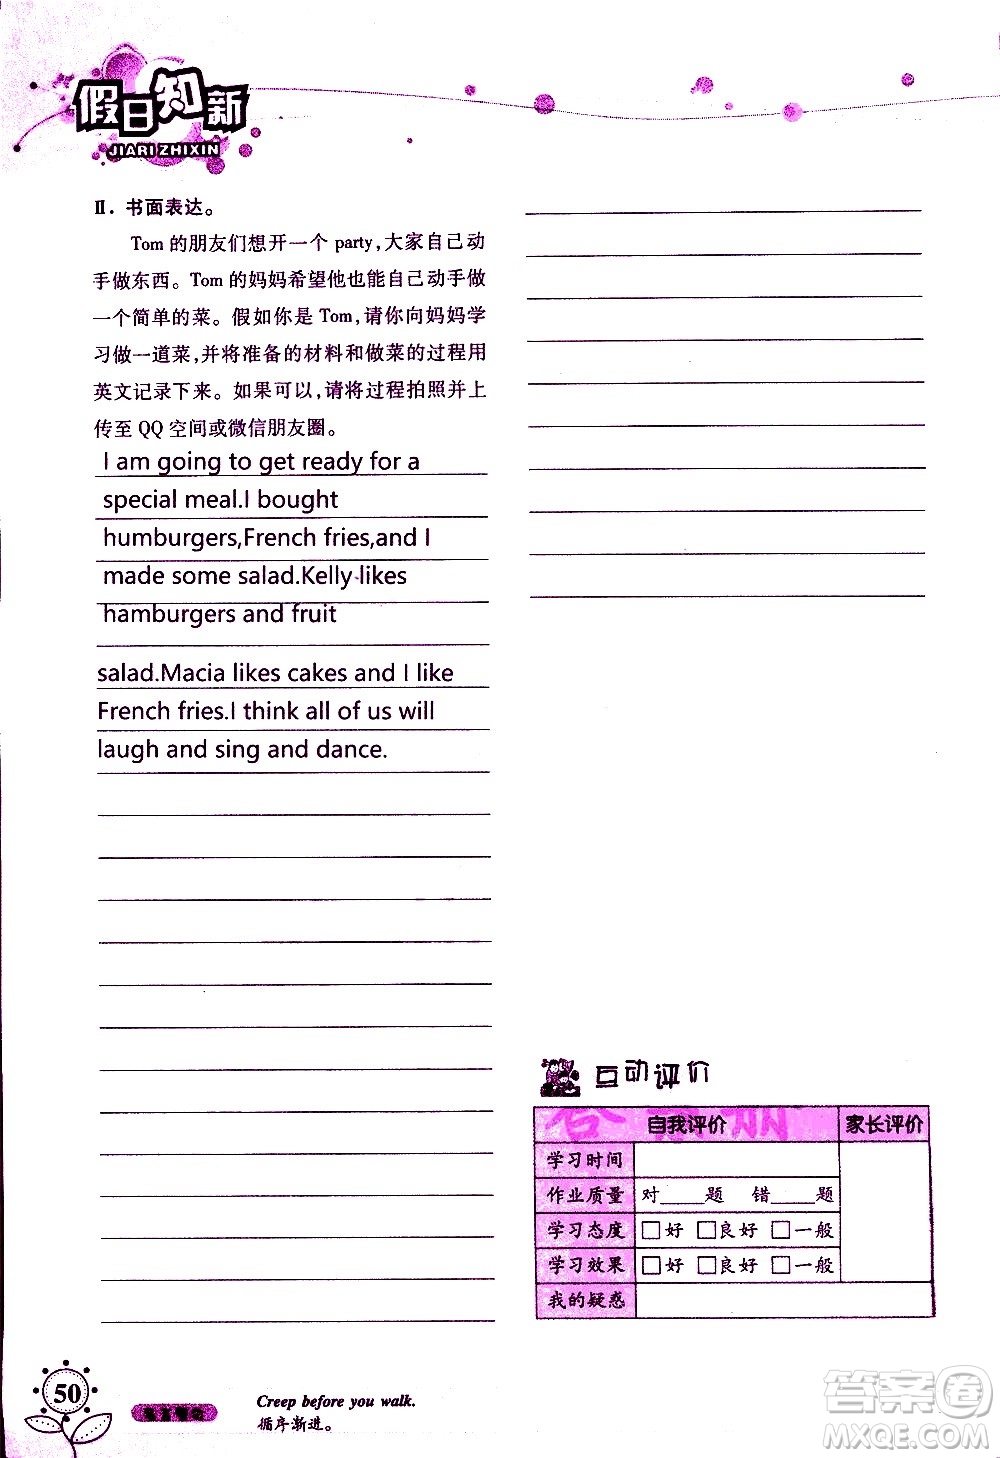 假日知新
JIARI ZHIXIN
Ⅱ. 书面表达。
Tom 的朋友们想开一个 party,大家自己动
手做东西。Tom 的妈妈希望他也能自己动手做
一个简单的菜。假如你是 Tom,请你向妈妈学
习做一道菜,并将准备的材料和做菜的过程用
英文记录下来。如果可以,请将过程拍照并上
传至 QQ 空间或微信朋友圈。
I am going to get ready for a
special meal.I bought
humburgers,French fries,and I
made some salad.Kelly likes
hamburgers and fruit
salad.Macia likes cakes and I like
French fries.I think all of us will
laugh and sing and dance.
互动评价
自我评价 家长评价
学习时间
作业质量 对____题 错____题
学习态度 □好 □良好 □一般
学习效果 □好 □良好 □一般
我的疑惑
50
Creep before you walk.
循序渐进。
答案圈
MXQE.COM